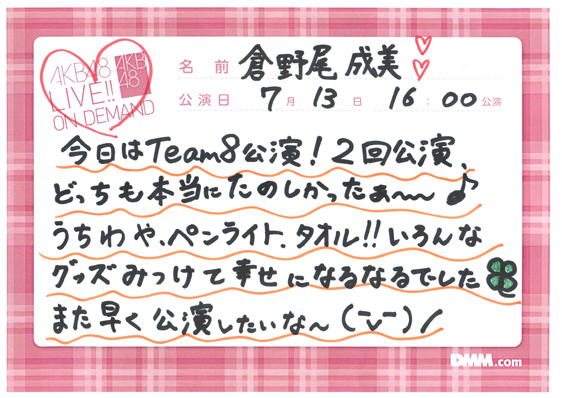 AKB48
LIVE!!
ON DEMAND
AKB
48
名前 倉野尾 成美
公演日 7月 13日 16:00公演
今日はTeam8公演！2回公演、
どっちも本当にたのしかったぁ〜〜♪
うちわや、ペンライト、タオル!!いろんな
グッズみつけて幸せになるなるでした
また早く公演したいな〜(ーvー)ノ
DMM.com